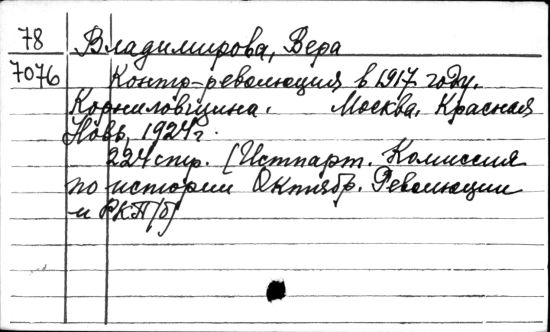 78 Владимирова, Вера
7076 Контр-революция в 1917 году.
Корниловщина. Москва. Красная
Новь, 1924 г.
224 стр. [Истпарт. Комиссия
по истории Октябр. Революции
и РКП/б/